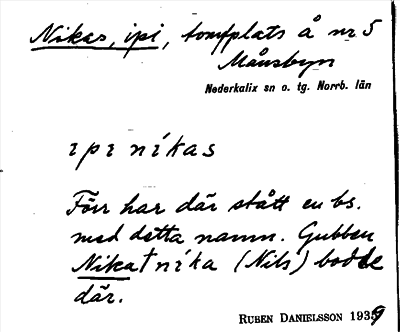 Nikas, ipi, tomtplats å nr 5
Månsbyn
Nederkalix sn o. tg. Norrb. län
ıpı níkas
Förr har där stått en bs.
med detta namn. Gubben
Nika † níka (Nils) bodde
där.
RUBEN DANIELSSON 1939